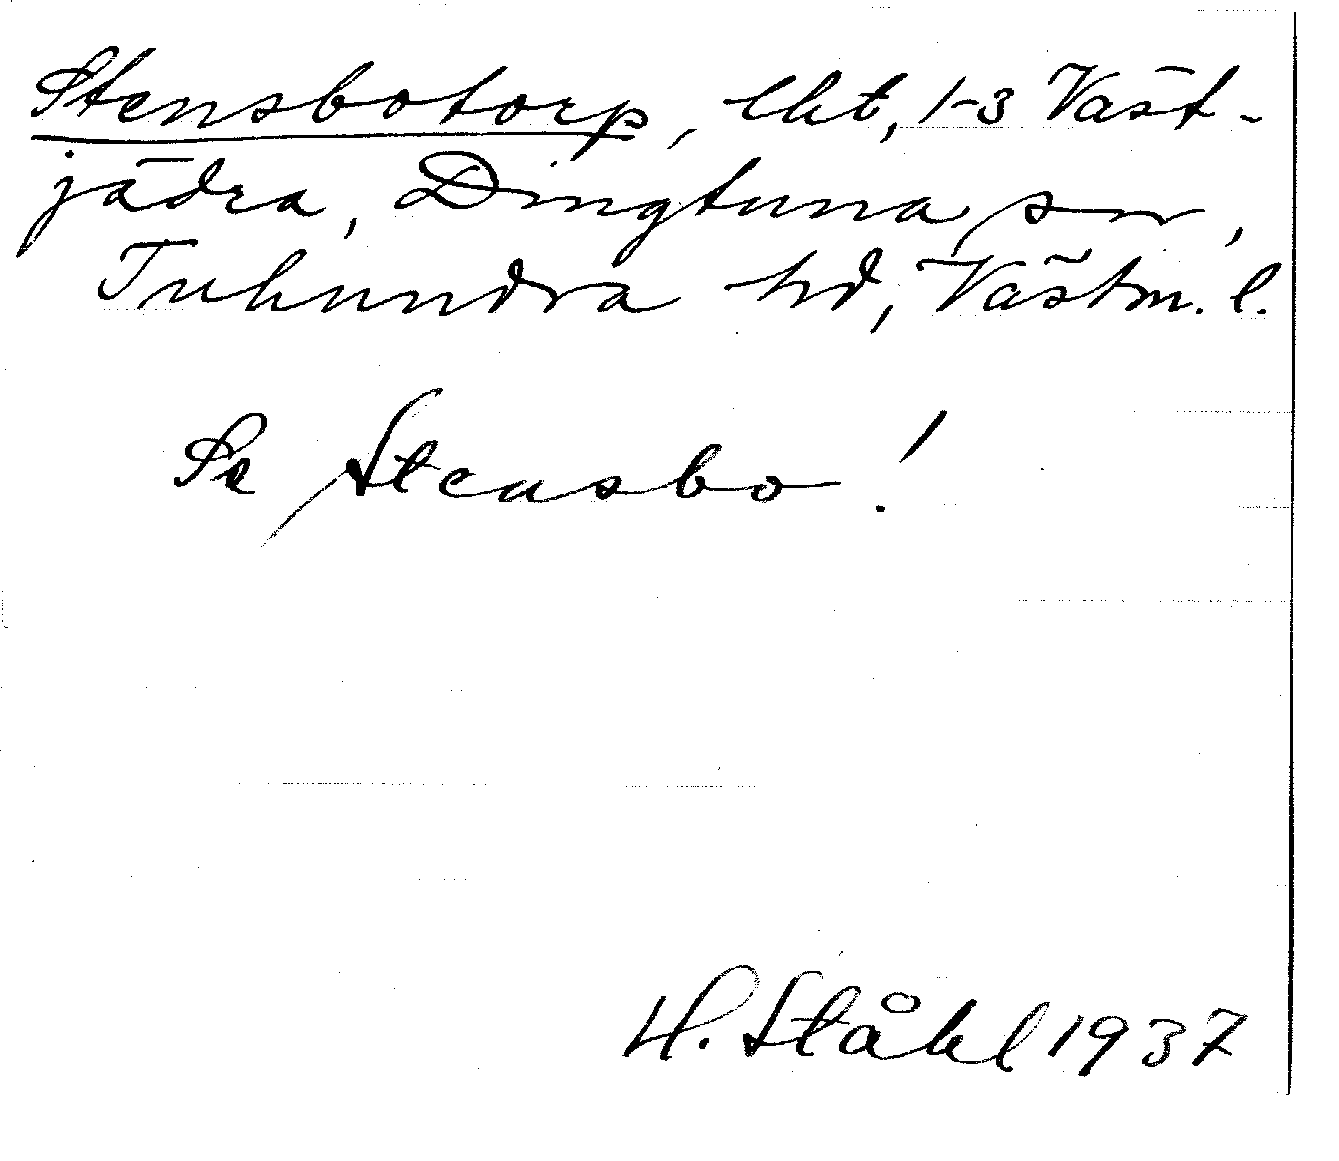 Stensbotorp, lht, 1-3 Väst-
jädra, Dingtuna sn,
Tuhundra hd, Västm. l.
Se Stensbo!
H. Ståhl 1937